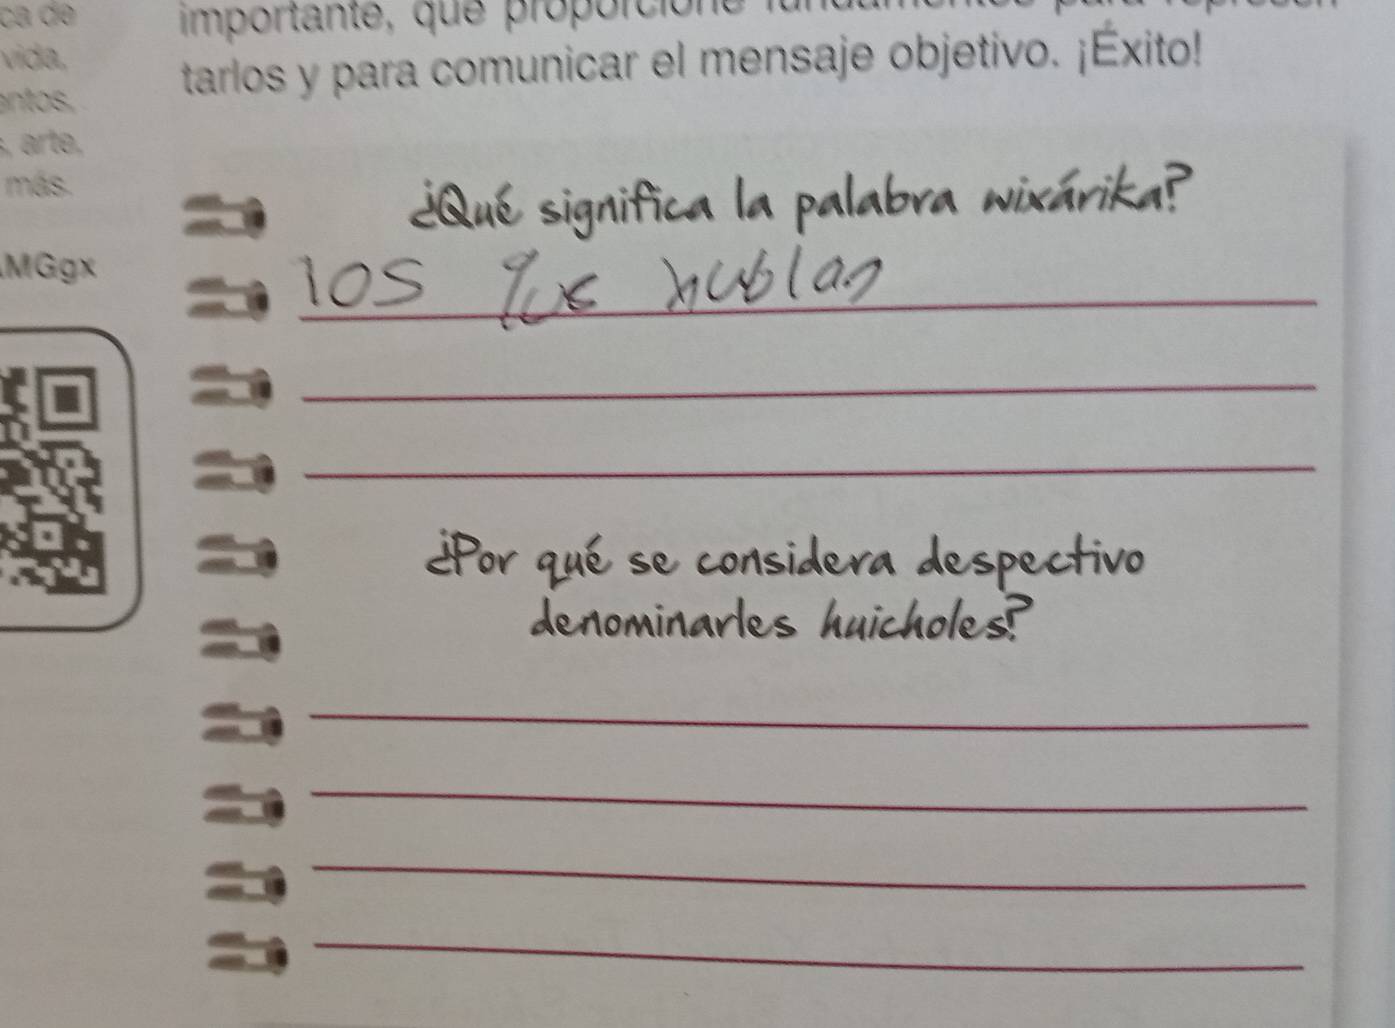 ca de
vida,
entos,
s, arte,
más.
MGgx
importante, que proporcione
tarlos y para comunicar el mensaje objetivo. ¡Éxito!
¿Qué significa la palabra wixárika?
los que hablan
¿Por qué se considera despectivo
denominarles huicholes?